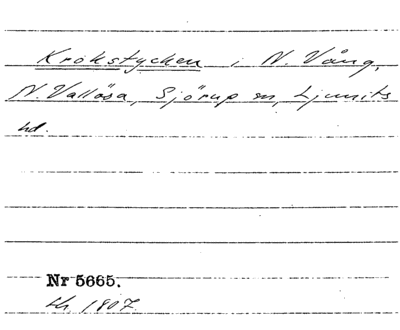 Krokstycken i N. Vång,
N. Vallösa, Sjörup sn, Ljunits
hd.
Nr 5665.
1807